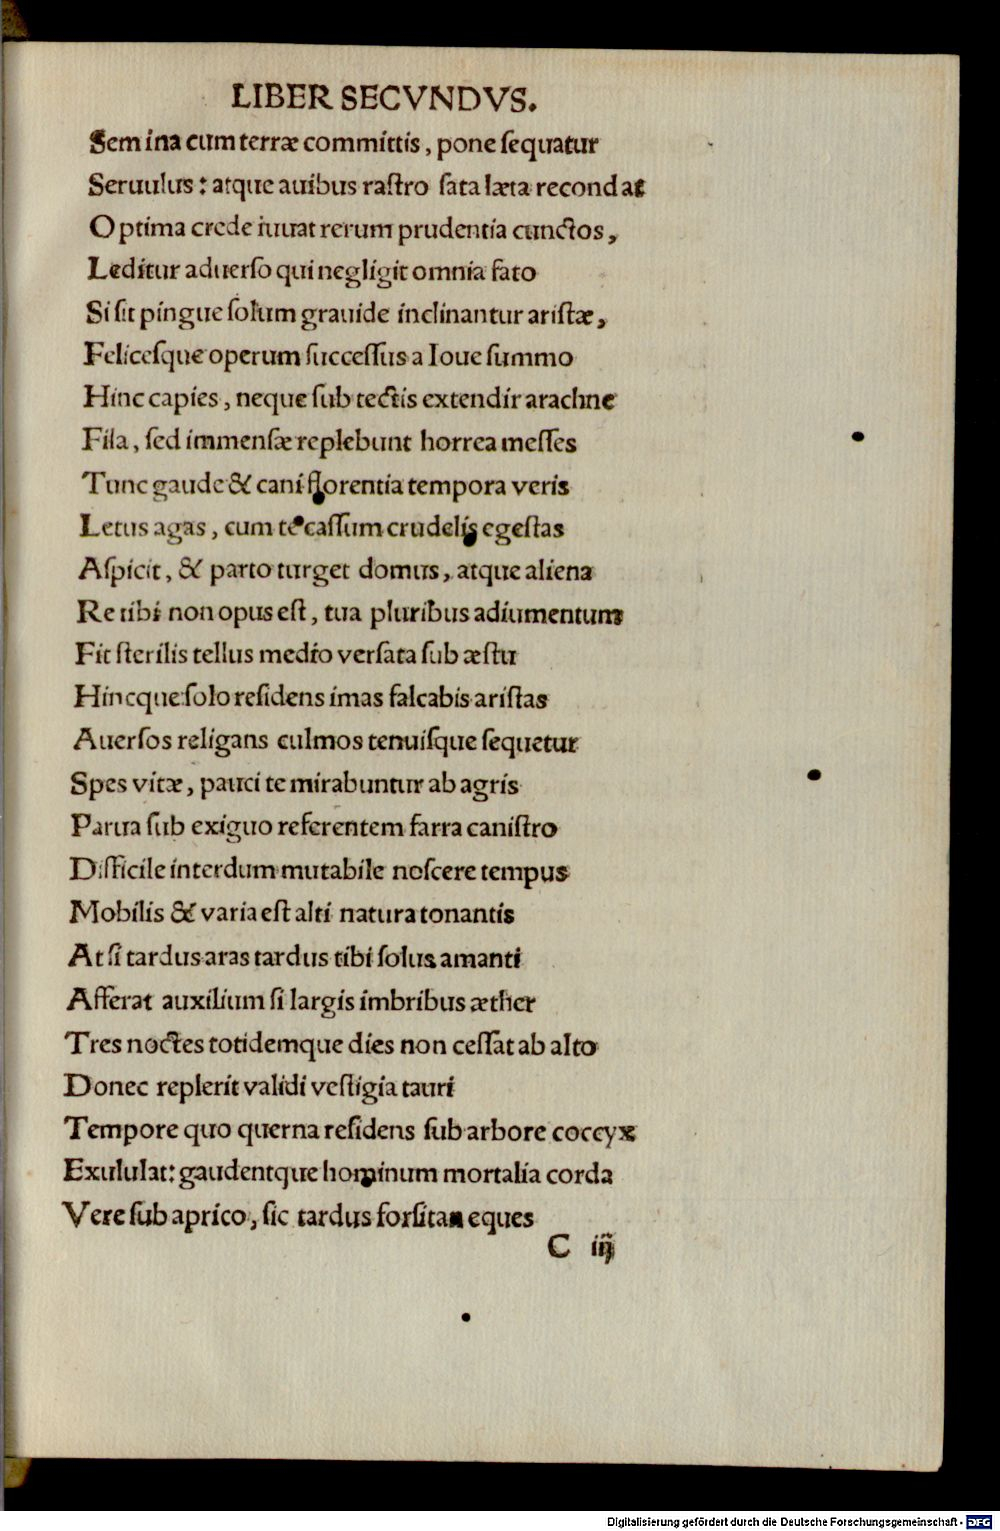 LIBER SECVNDVS.
Semina cum terræ committis, pone ſequatur
Seruulus: atque auibus raſtro ſata læta recondat
Optima crede iuuat rerum prudentia cunctos,
Leditur aduerſo qui negligit omnia fato
Si ſit pingue ſolum grauide inclinantur ariſtæ,
Feliceſque operum ſucceſſus a Ioue ſummo
Hinc capies, neque ſub tectis extendir arachne
Fila, ſed immenſæ replebunt horrea meſſes
Tunc gaude & cani florentia tempora veris
Letus agas, cum te caſſum crudelis egeſtas
Aſpicit, & parto turget domus, atque aliena
Re tibi non opus eſt, tua pluribus adiumentum
Fit ſterilis tellus medio verſata ſub æſtu
Hincque ſolo reſidens imas falcabis ariſtas
Auerſos religans culmos tenuiſque ſequetur
Spes vitæ, pauci te mirabuntur ab agris
Parua ſub exiguo referentem farra caniſtro
Difficile interdum mutabile noſcere tempus
Mobilis & varia eſt alti natura tonantis
At ſi tardus aras tardus tibi ſolus amanti
Afferat auxilium ſi largis imbribus æther
Tres noctes totidemque dies non ceſſat ab alto
Donec replerit validi veſtigia tauri
Tempore quo querna reſidens ſub arbore coccyx
Exululat: gaudentque hominum mortalia corda
Vere ſub aprico, ſic tardus forſitan eques
C iiij
Digitalisierung gefördert durch die Deutsche Forschungsgemeinschaft - DFG